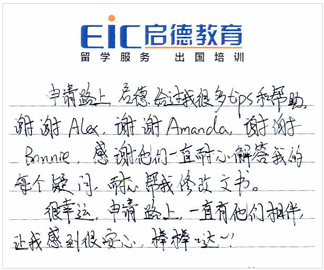 EIC启德教育
留学服务 出国培训
申请路上，启德给过我很多tips和帮助，
谢谢Alex，谢谢Amanda，谢谢
Bonnie，感谢他们一直耐心解答我的
每个疑问，耐心帮我修改文书。
很幸运，申请路上，一直有他们相伴，
让我感到很安心，棒棒哒~!